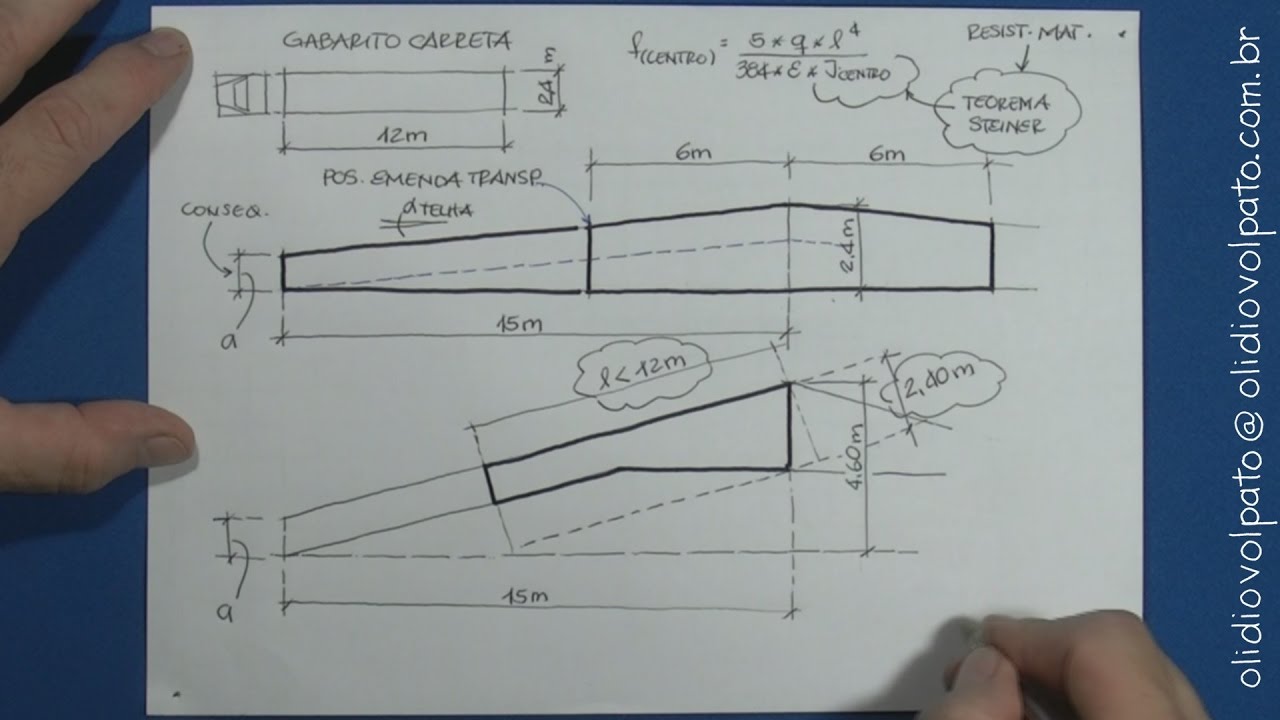 GABARITO CARRETA
2.4 m
12m
f(CENTRO) = 5 * q * l⁴
384 * E * JCENTRO
RESIST. MAT.
TEOREMA
STEINER
6m
6m
POS. EMENDA TRANSP.
α TELHA
CONSEQ.
a
2.4m
15m
l < 12m
2,40m
4.60m
a
15m
olidiovolpato @ olidiovolpato.com.br